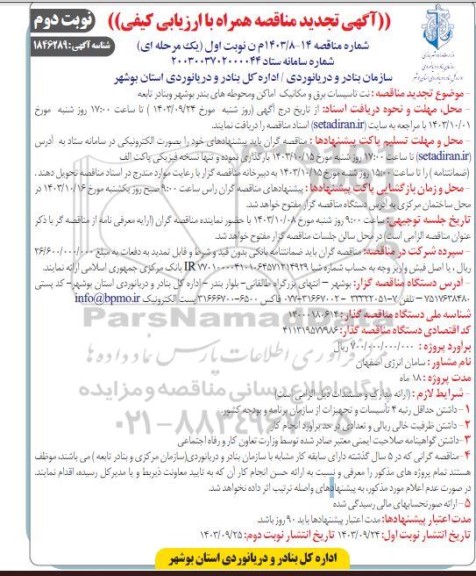 ((آگهی تجدید مناقصه همراه با ارزیابی کیفی))
نوبت دوم
شناسه آگهی: ۱۸۴۶۲۸۹
شماره مناقصه ۱۴-۱۴۰۳/۸م ن نوبت اول (یک مرحله ای)
شماره سامانه ستاد ۲۰۰۳۰۰۳۷۰۲۰۰۰۰۴۴
سازمان بنادر و دریانوردی / اداره کل بنادر و دریانوردی استان بوشهر
- موضوع تجدید مناقصه: نت تاسیسات برق و مکانیک اماکن ومحوطه های بندر بوشهر وبنادر تابعه
- محل، مهلت و نحوه دریافت اسناد: از تاریخ درج آگهی (روز شنبه مورخ ۱۴۰۳/۰۹/۲۴ ) تا ساعت ۱۷:۰۰ روز شنبه مورخ
۱۴۰۳/۱۰/۰۱ با مراجعه به سایت (setadiran.ir) اسناد مناقصه را دریافت نمایند.
- محل و مهلت تسلیم پاکت پیشنهادها: مناقصه گران باید پیشنهادهای خود را بصورت الکترونیکی در سامانه ستاد به آدرس
(setadiran.ir) تا ساعت ۱۷:۰۰ روز شنبه مورخ ۱۴۰۳/۱۰/۱۵ بارگذاری نموده و تنها نسخه فیزیکی پاکت الف
(ضمانتنامه) را تا ساعت ۱۵:۰۰ روز شنبه مورخ ۱۴۰۳/۱۰/۱۵ به دبیرخانه مناقصه گزار با رعایت موارد مندرج در اسناد مناقصه تحویل دهند.
- محل و زمان بازگشایی پاکت پیشنهادها: پیشنهادهای مناقصه گران راس ساعت ۹:۰۰ صبح روز یکشنبه مورخ ۱۴۰۳/۱۰/۱۶ در
محل ساختمان مرکزی به آدرس دستگاه مناقصه گزار مفتوح خواهد شد.
تاریخ جلسه توجیهی: ساعت ۹:۰۰ روز شنبه مورخ ۱۴۰۳/۱۰/۰۸ با حضور نماینده مناقصه گران (ارایه معرفی نامه از مناقصه گر با ذکر
عنوان مناقصه الزامی است) در محل سالن جلسات مناقصه گزار مفتوح خواهد شد.
- سپرده شرکت در مناقصه: مناقصه گران باید ضمانتنامه بانکی بدون قید و شرط و قابل تمدید به دفعات به مبلغ ۲۶/۶۰۰/۰۰۰/۰۰۰
ریال، یا اصل فیش واریز وجه به حساب شماره شبا بانک مرکزی جمهوری اسلامی ارائه نمایند.
- آدرس دستگاه مناقصه گزار: بوشهر – انتهای بزرگراه طالقانی- بلوار بندر – اداره کل بنادر و دریانوردی استان بوشهر- کد پستی
۷۵۱۷۶۳۸۴۸۰ - تلفن پست الکترونیک info@bpmo.ir
شناسه ملی دستگاه مناقصه گزار: ۱۴۰۰۰۱۸۰۶۱۴
کد اقتصادی دستگاه مناقصه گزار: ۴۱۱۳۱۹۵۷۷۹۸۶
برآورد پروژه: ۷۰۰/۰۰۰/۰۰۰/۰۰۰ ریال
نام مشاور: سامان انرژی اصفهان
مدت پروژه: ۱۸ ماه
- شرایط لازم: (ارائه مدارک و مستندات ذیل الزامی است)
۱- داشتن حداقل رتبه ۴ تأسیسات و تجهیزات از سازمان برنامه و بودجه کشور.
۲- داشتن ظرفیت خالی ریالی و تعدادی در حد برآورد انجام کار
۳- داشتن گواهینامه صلاحیت ایمنی معتبر صادر شده توسط وزارت تعاون کار و رفاه اجتماعی
۴- مناقصه گرانی که در ۵ سال گذشته دارای سابقه کار مشابه با سازمان بنادر و دریانوردی(سازمان مرکزی و بنادر تابعه) می باشند، موظف
هستند تمام پروژه های مذکور را معرفی و نسبت به ارائه حسن انجام کار آن که به تایید معاونت ذیربط و یا مدیرکل رسیده، اقدام نمایند.
در صورت عدم اعلام مورد مذکور، به پیشنهادهای واصله ترتیب اثر داده نخواهد شد.
۵- ارائه صورتحسابهای مالی رسیدگی شده
مدت اعتبار پیشنهادها: مدت اعتبار پیشنهادها باید ۹۰ روز باشد.
تاریخ انتشار نوبت اول: ۱۴۰۳/۰۹/۲۴ تاریخ انتشار نوبت دوم: ۱۴۰۳/۰۹/۲۵
اداره کل بنادر و دریانوردی استان بوشهر
ParsNamadData
پایگاه اطلاع رسانی مناقصه و مزایده